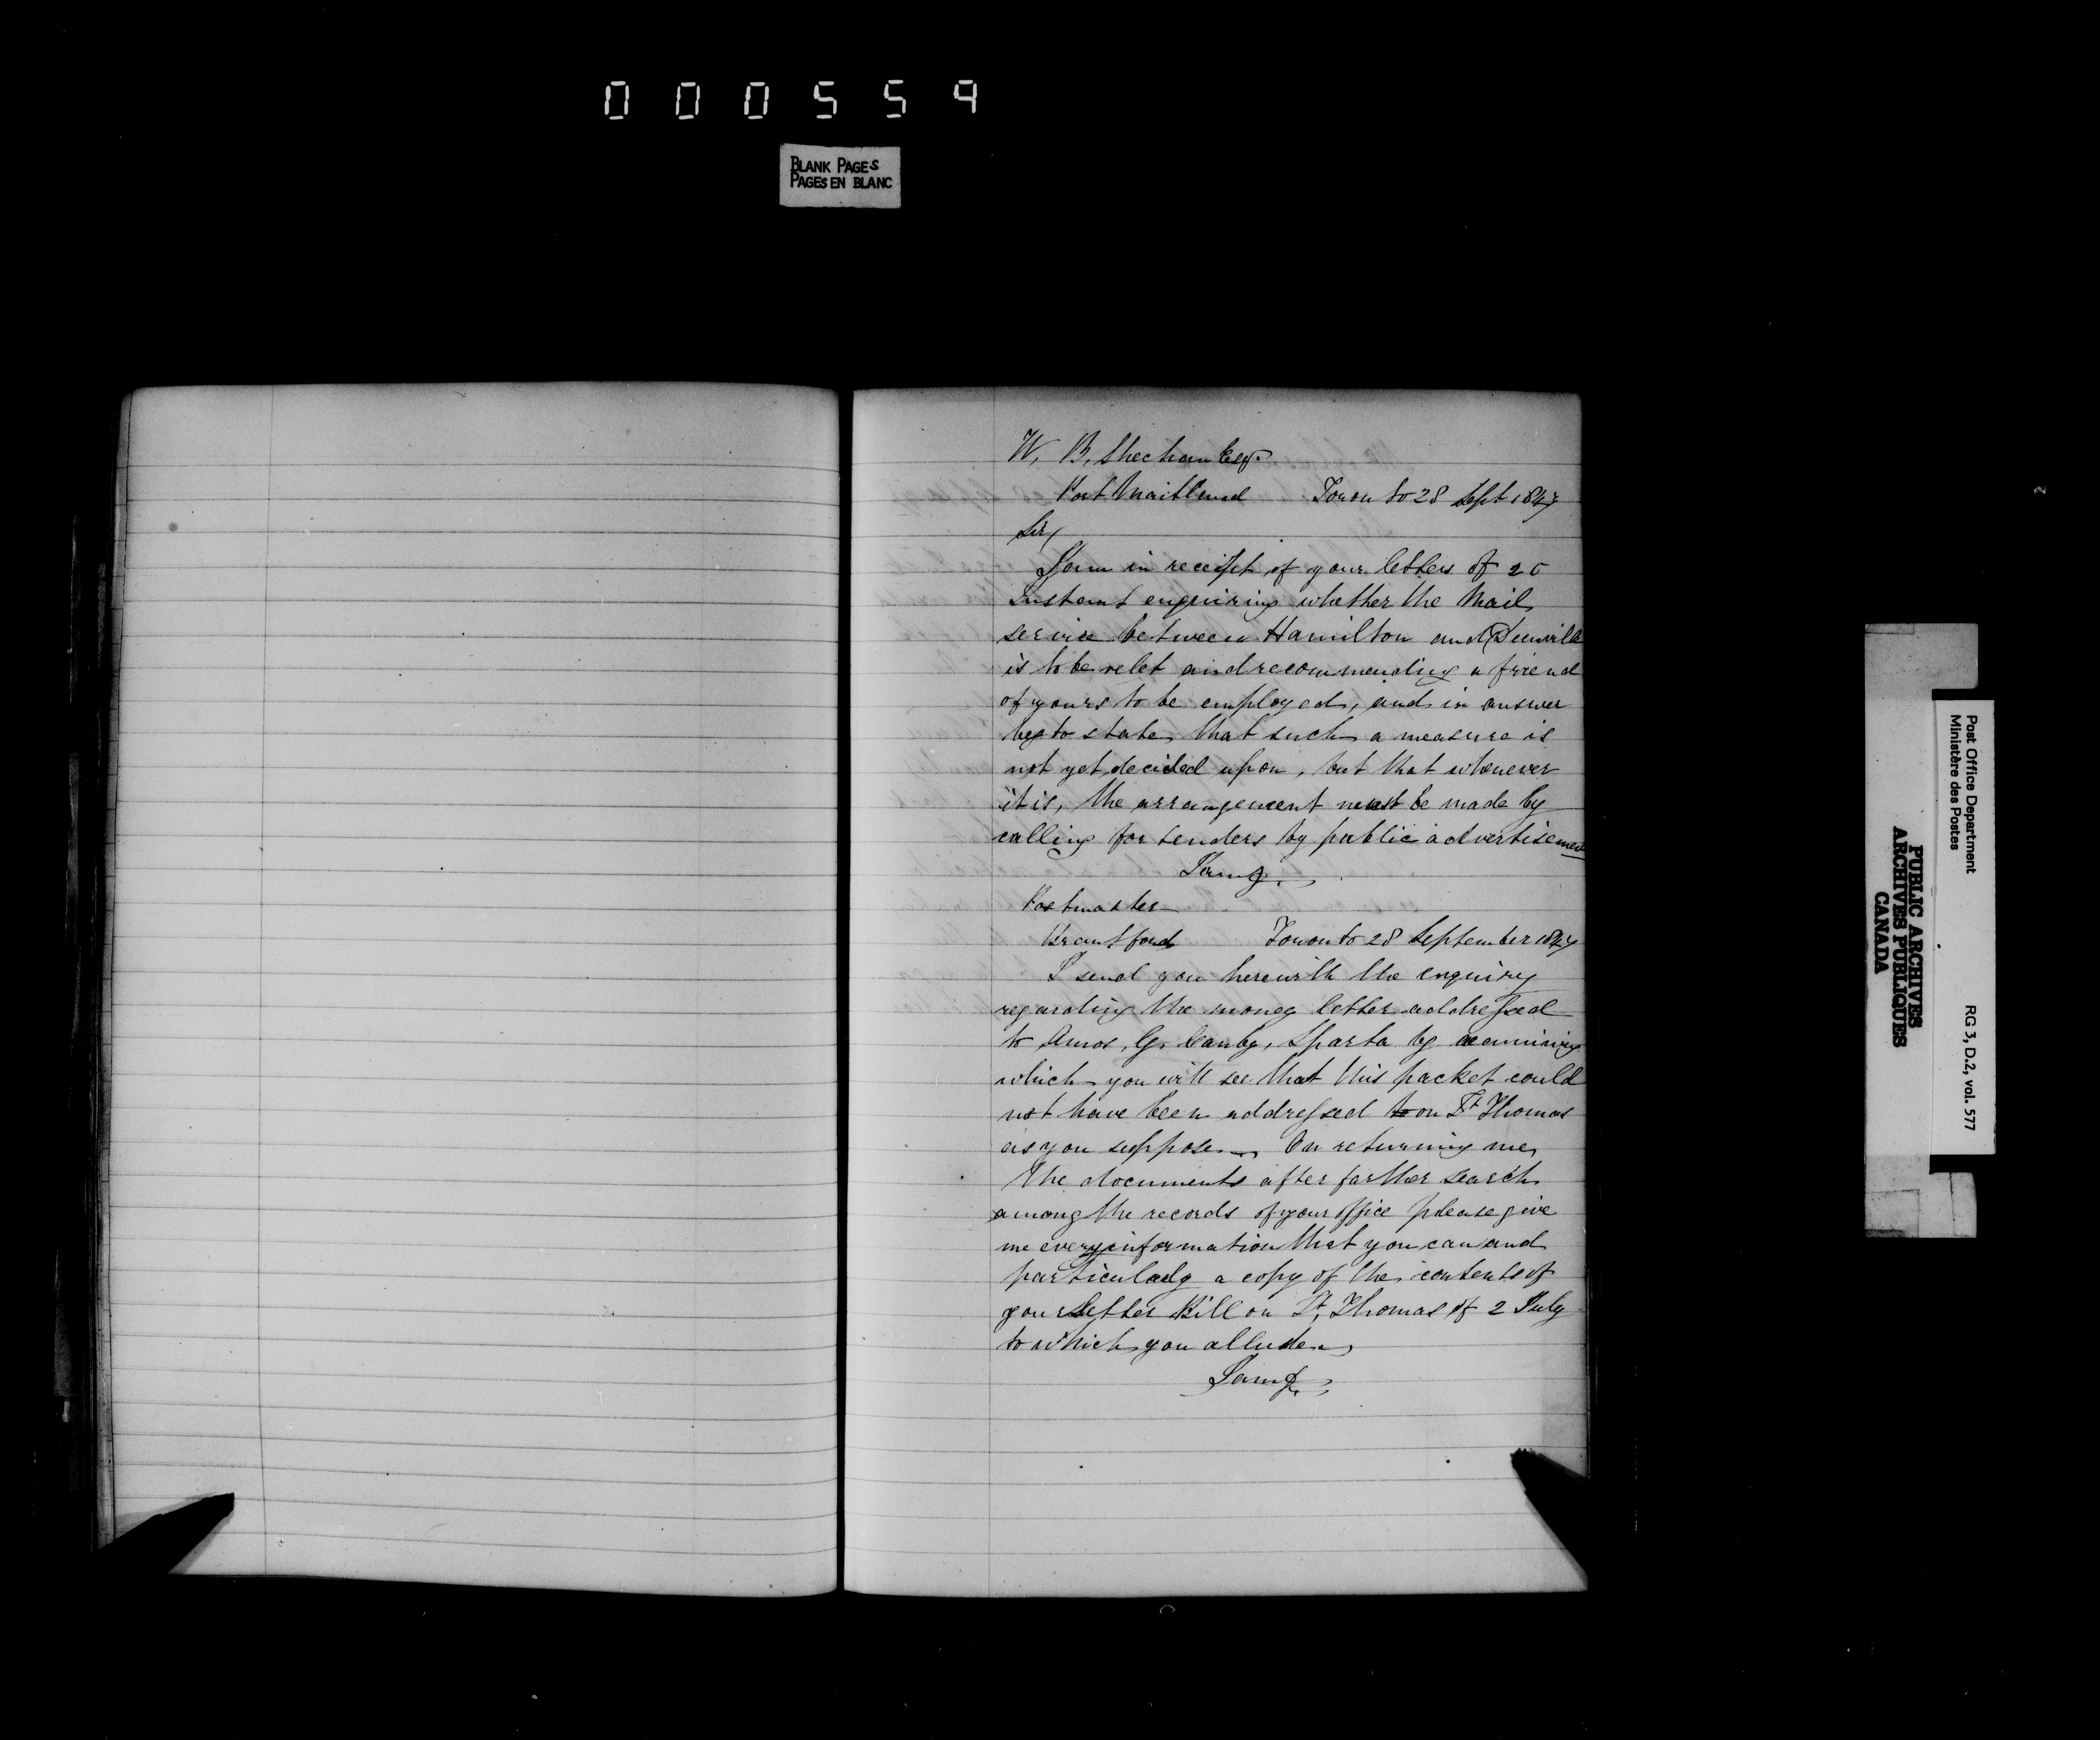 000559
BLANK PAGES
PAGES EN BLANC
W. B. Sheehan Esq.
Port Maitland Toronto 28 Sept 1847
Sir,
I am in receipt of your letters of 20
Instant enquiring whether the Mail
service between Hamilton and Dunville
is to be relet and recommending a friend
of yours to be employed, and in answer
beg to state that such a measure is
not yet decided upon, but that whenever
it is, the arrangement must be made by
calling for tenders by public advertisement
I am &.
Postmaster
Brantford Toronto 28 September 1847
I send you herewith the enquiry
regarding the money letter addressed
to Amos, G. Canby, Sparta by examining
which you will see that this packet could
not have been addressed to on St Thomas
as you suppose. On returning me
the documents after farther search
among the records of your office please give
me every information that you can and
particularly a copy of the contents of
your Letter Bill on St, Thomas of 2 July
to which you allude.
I am &.
Post Office Department
Ministère des Postes
RG 3, D.2, vol. 577
PUBLIC ARCHIVES
ARCHIVES PUBLIQUES
CANADA